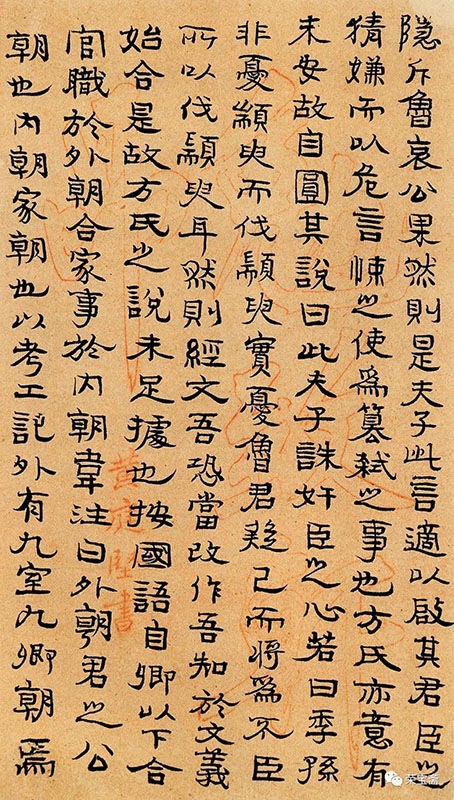 隱斥魯哀公果然則是夫子此言適以啟其君臣之
猜嫌而以危言悚之使爲篡弒之事也方氏亦意有
未安故自圓其說曰此夫子誅奸臣之心若曰季孫
非憂顓臾而伐顓臾實憂魯君疑己而將爲不臣
所以伐顓臾耳然則經文吾恐當改作吾知於文義
始合是故方氏之說未足據也按國語自卿以下合
官職於外朝合家事於內朝韋注曰外朝君之公
朝也內朝家朝也以考工記外有九室九卿朝焉
荣宝斋